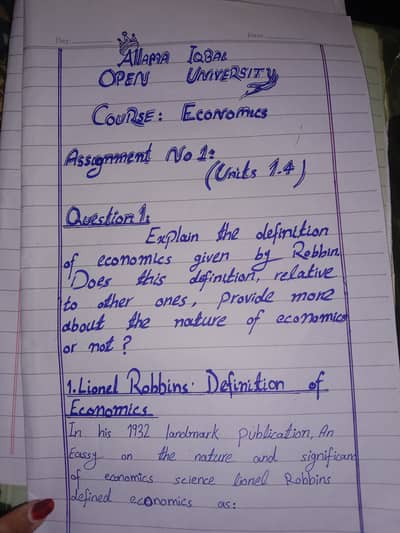 Allama Iqbal
Open University
Course: Economics
Assignment No 1:
(Units 1.4)
Question 1.
Explain the definition
of economics given by Robbin
Does this definition, relative
to other ones, provide more
about the nature of economics
or not?
1. Lionel Robbins' Definition of
Economics
In his 1932 landmark publication, An
Eassy on the nature and significan
of economics science lionel Robbins
defined economics as: